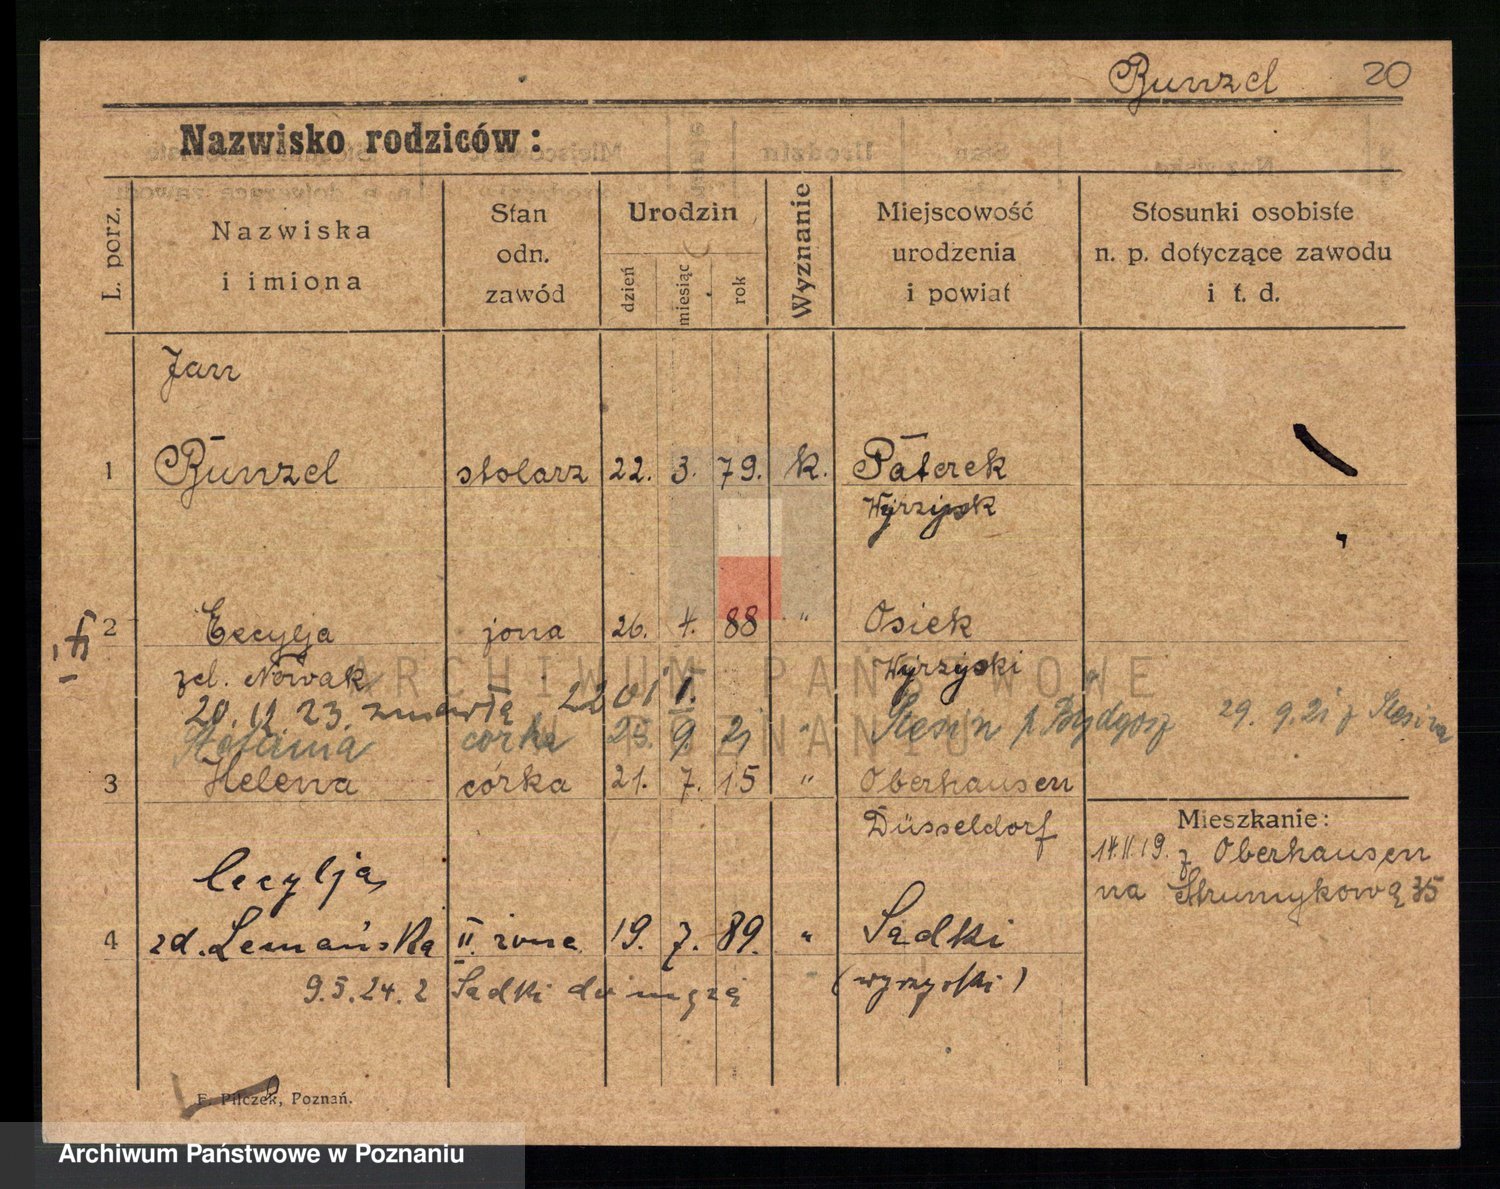 Bunzel 20
Nazwisko rodziców:
L. porz.
Nazwiska
i imiona
Stan
odn.
zawód
Urodzin
dzień
miesiąc
rok
Wyznanie
Miejscowość
urodzenia
i powiat
Stosunki osobiste
n. p. dotyczące zawodu
i t. d.
Jan
1 Bunzel stolarz 22. 3. 79. k. Paterek
Wyrzysk
2 Cecylja żona 26. 4. 88 " Osiek
zd. Nowak Wyrzyski
20. 11 23. zmarła
Stefania córka 25. 9 21 " 29. 9. 21 z
3 Helena córka 21. 7. 15 " Oberhausen
Düsseldorf
Mieszkanie:
14.11.19. z Oberhausen
na Strumykową 35
Cecylja
4 zd. Lemańska II. żona 19. 7. 89. " Sadki
9.5.24. z Sadki do męża (wyrzyski)
F. Pilczek, Poznań.
ARCHIWUM PAŃSTWOWE
W POZNANIU
Archiwum Państwowe w Poznaniu